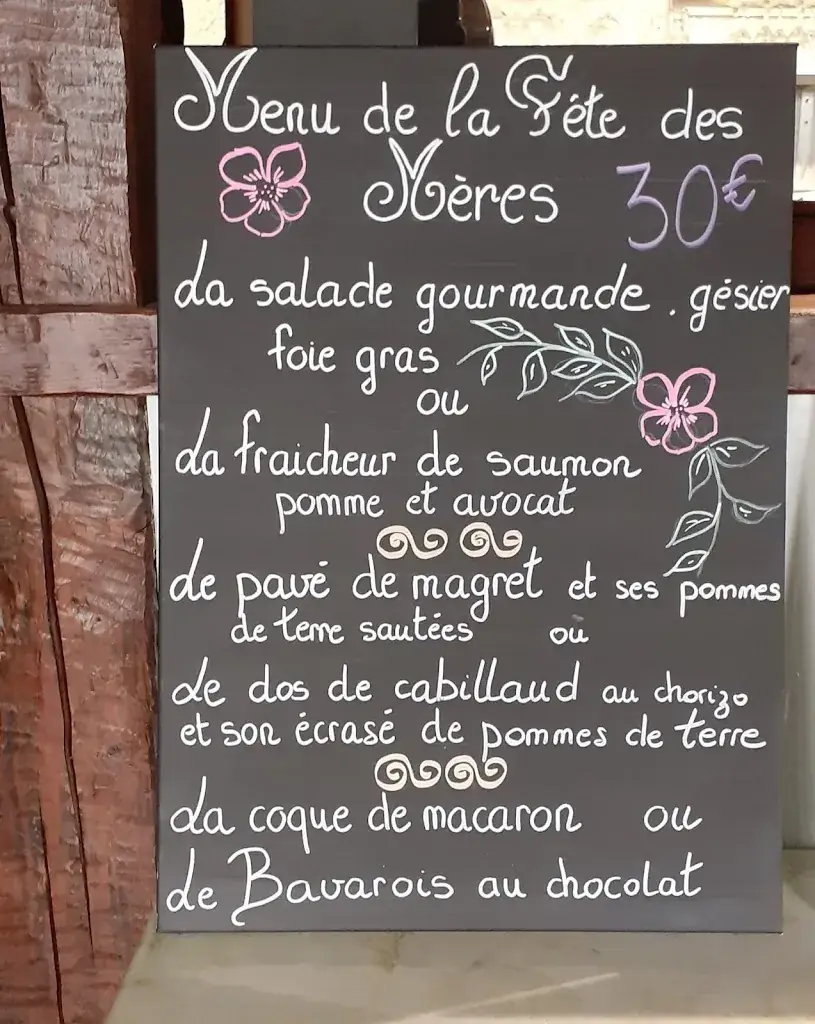 Menu de la Fête des
Mères 30€
La salade gourmande. gésier
foie gras
ou
La fraicheur de saumon
pomme et avocat
Le pavé de magret et ses pommes
de terre sautées où
Le dos de cabillaud au chorizo
et son écrasé de pommes de terre
La coque de macaron ou
Le Bavarois au chocolat